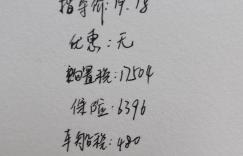 指导价:19.18
优惠:无
购置税:12504
保险:6396
车船税:480